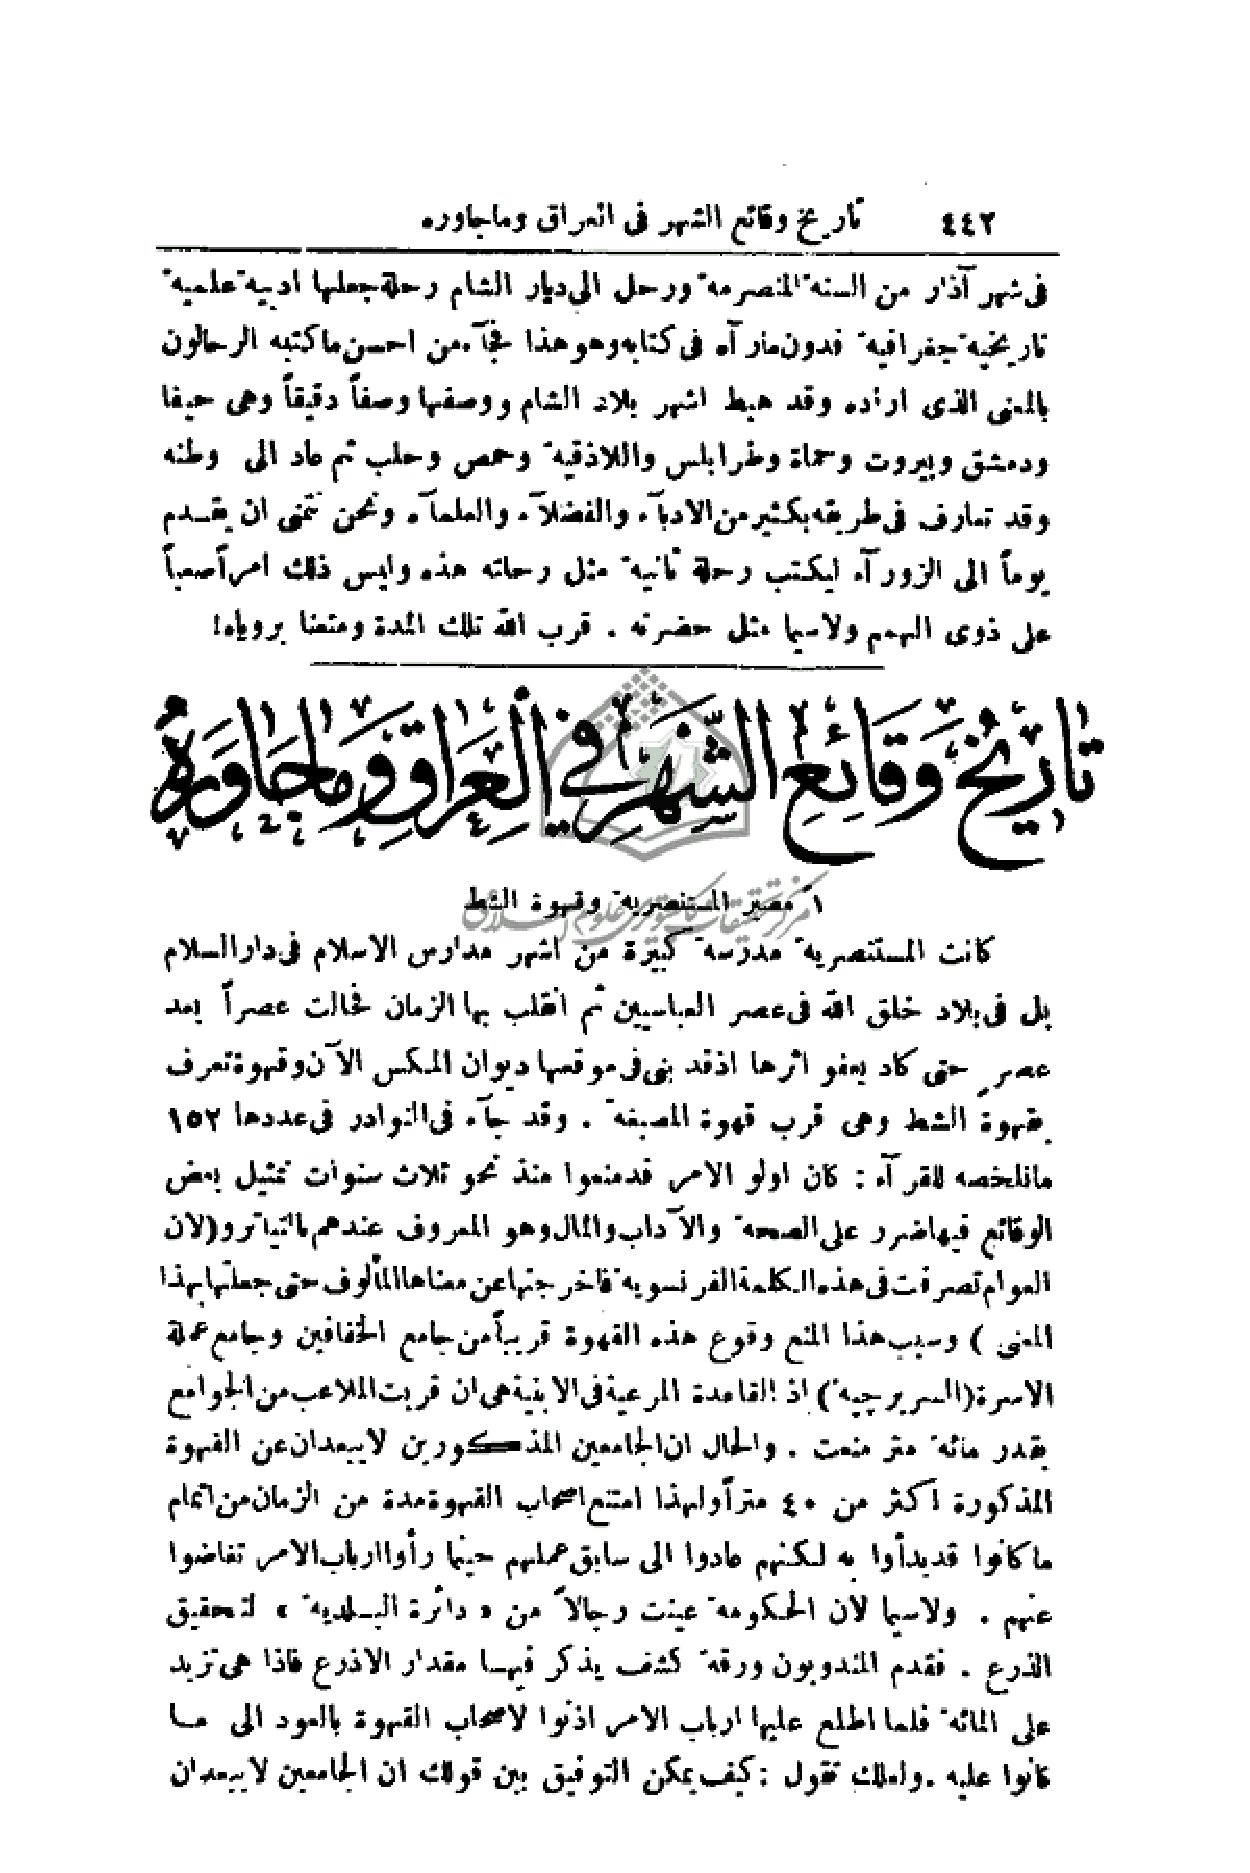 ٤٤٢ تاريخ وقائع الشهر في العراق وماجاوره
في شهر آذار من السنة المنصرمة ورحل الى ديار الشام رحلة جعلها ادبية علمية
تاريخية جغرافية فدون مارآه في كتابه وهو هذا فجآء من احسن ما كتبه الرحالون
بالمعنى الذى اراده وقد هبط اشهر بلاد الشام ووصفها وصفاً دقيقاً وهى حيفا
ودمشق وبيروت وحماة وطرابلس واللاذقية وحمص وحلب ثم عاد الى وطنه
وقد تعارف في طريقه بكثير من الادبآء والفضلآء والعلمآء ونحن نتمنى ان يقدم
يوماً الى الزورآء ليكتب رحلة ثانية مثل رحلته هذه وليس ذلك امراً صعباً
على ذوى الهمم ولاسيما مثل حضرته . قرب الله تلك المدة ومتعنا برؤياه!
تاريخ وقائع الشهر في العراق وماجاوره
١ مصير المستنصرية وقهوة الشط
كانت المستنصرية مدرسة كبيرة من اشهر مدارس الاسلام في دار السلام
بل في بلاد خلق الله في عصر العباسيين ثم انقلب بها الزمان فحالت عصراً بعد
عصر حتى كاد يعفو اثرها اذقد بنى في موقعها ديوان المكس الآن وقهوة تعرف
بقهوة الشط وهى قرب قهوة المصبغة . وقد جآء في النوادر في عددها ١٥٢
مانلخصه للقرآء : كان اولو الامر قد منعوا منذ نحو ثلاث سنوات تمثيل بعض
الوقائع فيها ضرر على الصحة والآداب والمال وهو المعروف عندهم بالتياترو (لان
العوام تصرفت في هذه الكلمة الفرنسوية فاخرجتها عن معناها المألوف حتى جعلتها بهذا
المعنى ) وسبب هذا المنع وقوع هذه القهوة قريباً من جامع الخفافين وجامع عملة
الاسرة (السريرجية) اذ القاعدة المرعية في الابنية هى ان قربت الملاعب من الجوامع
بقدر مائة متر منعت . والحال ان الجامعين المذكورين لايبعدان عن القهوة
المذكورة اكثر من ٤٠ متراً ولهذا امتنع اصحاب القهوة مدة من الزمان من اتمام
ما كانوا قد بدأوا به لكنهم عادوا الى سابق عملهم حينما رأوا ارباب الامر تغاضوا
عنهم . ولاسيما لان الحكومة عينت رجالاً من « دائرة البلدية » لتحقيق
الذرع . فقدم المندوبون ورقة كشف يذكر فيها مقدار الاذرع فاذا هى تزيد
على المائة فلما اطلع عليها ارباب الامر اذنوا لاصحاب القهوة بالعود الى ما
كانوا عليه . ولعلك تقول : كيف يمكن التوفيق بين قولك ان الجامعين لايبعدان